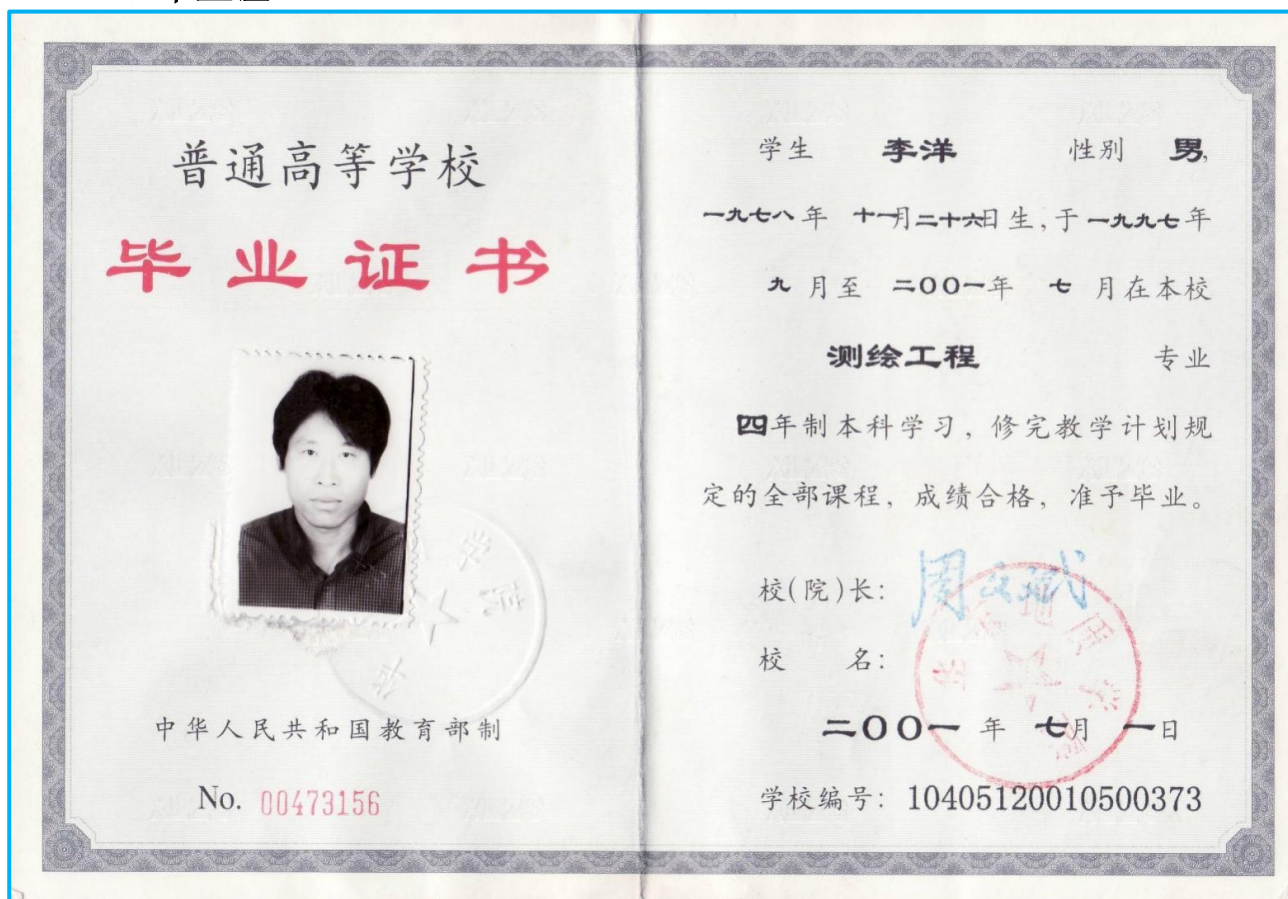 普通高等学校
毕业证书
中华人民共和国教育部制
No. 00473156
学生 李洋 性别 男,
一九七八年 十一月二十六日生,于一九九七年
九月至 二〇〇一年 七 月在本校
测绘工程 专业
四年制本科学习, 修完教学计划规
定的全部课程, 成绩合格, 准予毕业。
校(院)长: 周
校 名:
地质学院
二〇〇一 年 七月 一日
学校编号: 10405120010500373